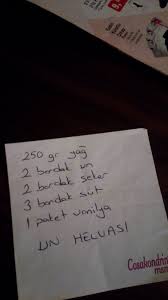 250 gr yağ
2 bardak un
2 bardak şeker
3 bardak süt
1 paket vanilya
UN HELVASI